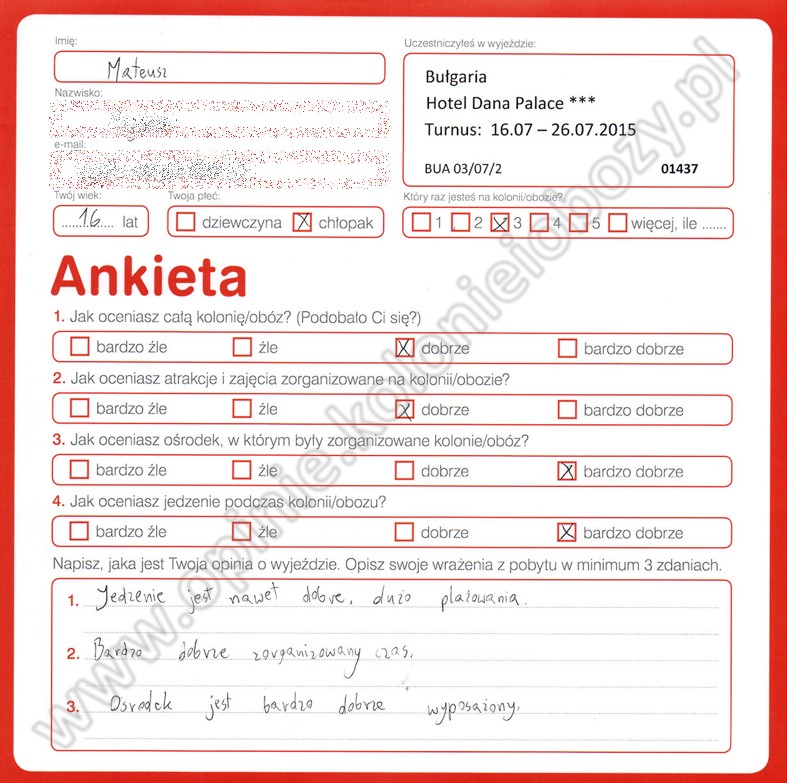 Imię:
Mateusz
Nazwisko:
e-mail:
Twój wiek:
16 lat
Twoja płeć:
dziewczyna X chłopak
Uczestniczyłeś w wyjeździe:
Bułgaria
Hotel Dana Palace ***
Turnus: 16.07 – 26.07.2015
BUA 03/07/2 01437
Który raz jesteś na kolonii/obozie?
1 2 X 3 4 5 więcej, ile .......
Ankieta
1. Jak oceniasz całą kolonię/obóz? (Podobało Ci się?)
bardzo źle źle X dobrze bardzo dobrze
2. Jak oceniasz atrakcje i zajęcia zorganizowane na kolonii/obozie?
bardzo źle źle X dobrze bardzo dobrze
3. Jak oceniasz ośrodek, w którym były zorganizowane kolonie/obóz?
bardzo źle źle dobrze X bardzo dobrze
4. Jak oceniasz jedzenie podczas kolonii/obozu?
bardzo źle źle dobrze X bardzo dobrze
Napisz, jaka jest Twoja opinia o wyjeździe. Opisz swoje wrażenia z pobytu w minimum 3 zdaniach.
1. Jedzenie jest nawet dobre, dużo plażowania.
2. Bardzo dobrze zorganizowany czas.
3. Osrodek jest bardzo dobrze wyposażony.
www.opinie.kolonieiobozy.pl